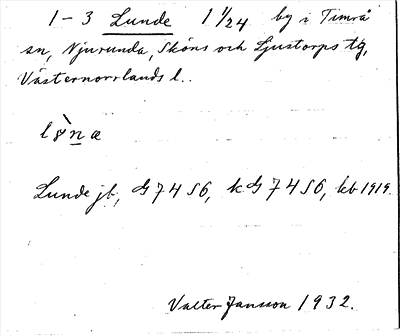 1-3 Lunde 1 1/24 by i Timrå
sn, Njurunda, Sköns och Ljustorps tg,
Västernorrlands l.
Lunde jb, G 7456, kG 7456, kb 1919.
Valter Jansson 1932.